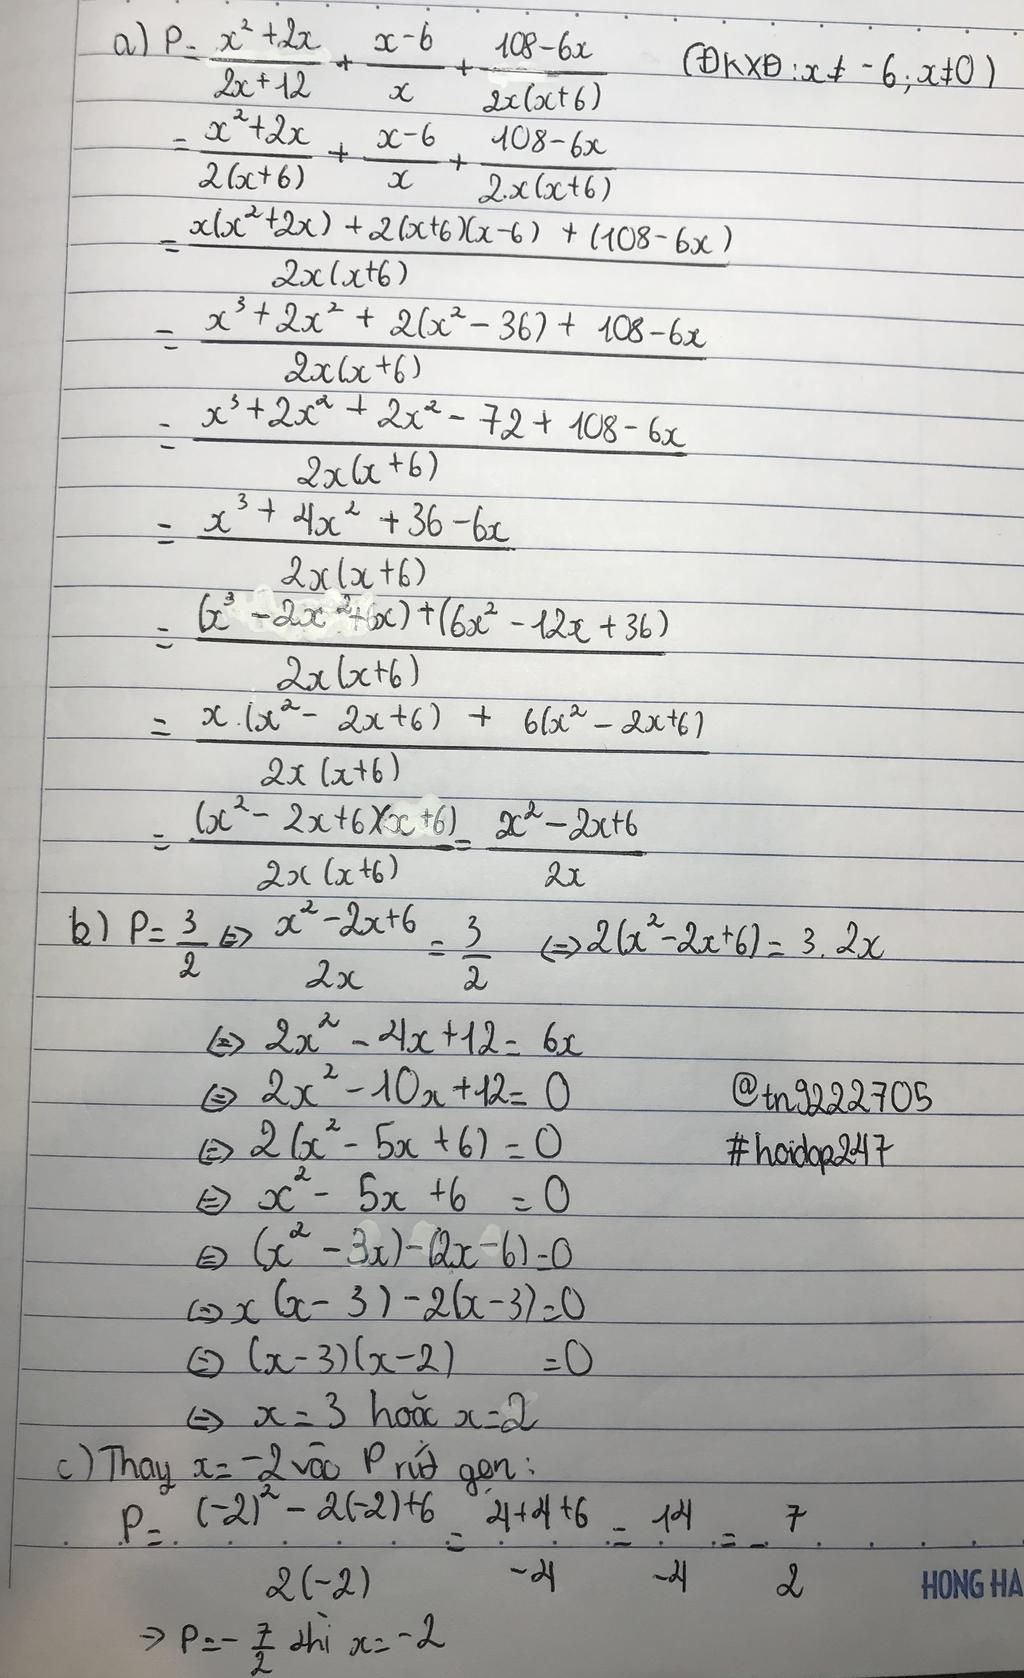 a) P = \frac{x^2+2x}{2x+12} + \frac{x-6}{x} + \frac{108-6x}{2x(x+6)} (ĐKXĐ: x ≠ -6; x ≠ 0)
= \frac{x^2+2x}{2(x+6)} + \frac{x-6}{x} + \frac{108-6x}{2.x(x+6)}
= \frac{x(x^2+2x) + 2(x+6)(x-6) + (108-6x)}{2x(x+6)}
= \frac{x^3+2x^2+2(x^2-36)+108-6x}{2x(x+6)}
= \frac{x^3+2x^2+2x^2-72+108-6x}{2x(x+6)}
= \frac{x^3+4x^2+36-6x}{2x(x+6)}
= \frac{(x^3-2x^2+6x)+(6x^2-12x+36)}{2x(x+6)}
= \frac{x.(x^2-2x+6) + 6(x^2-2x+6)}{2x(x+6)}
= \frac{(x^2-2x+6)(x+6)}{2x(x+6)} = \frac{x^2-2x+6}{2x}
b) P = \frac{3}{2} ⇔ \frac{x^2-2x+6}{2x} = \frac{3}{2} ⇔ 2(x^2-2x+6) = 3.2x
⇔ 2x^2 - 4x + 12 = 6x
⇔ 2x^2 - 10x + 12 = 0
@tn9222705
⇔ 2(x^2 - 5x + 6) = 0
#hoidap247
⇔ x^2 - 5x + 6 = 0
⇔ (x^2 - 3x) - (2x - 6) = 0
⇔ x(x-3) - 2(x-3) = 0
⇔ (x-3)(x-2) = 0
⇔ x = 3 hoặc x = 2
c) Thay x = -2 vào P rút gọn:
P = \frac{(-2)^2 - 2(-2) + 6}{2(-2)} = \frac{4+4+6}{-4} = \frac{14}{-4} = -\frac{7}{2}
HONG HA
⇒ P = -\frac{7}{2} thì x = -2